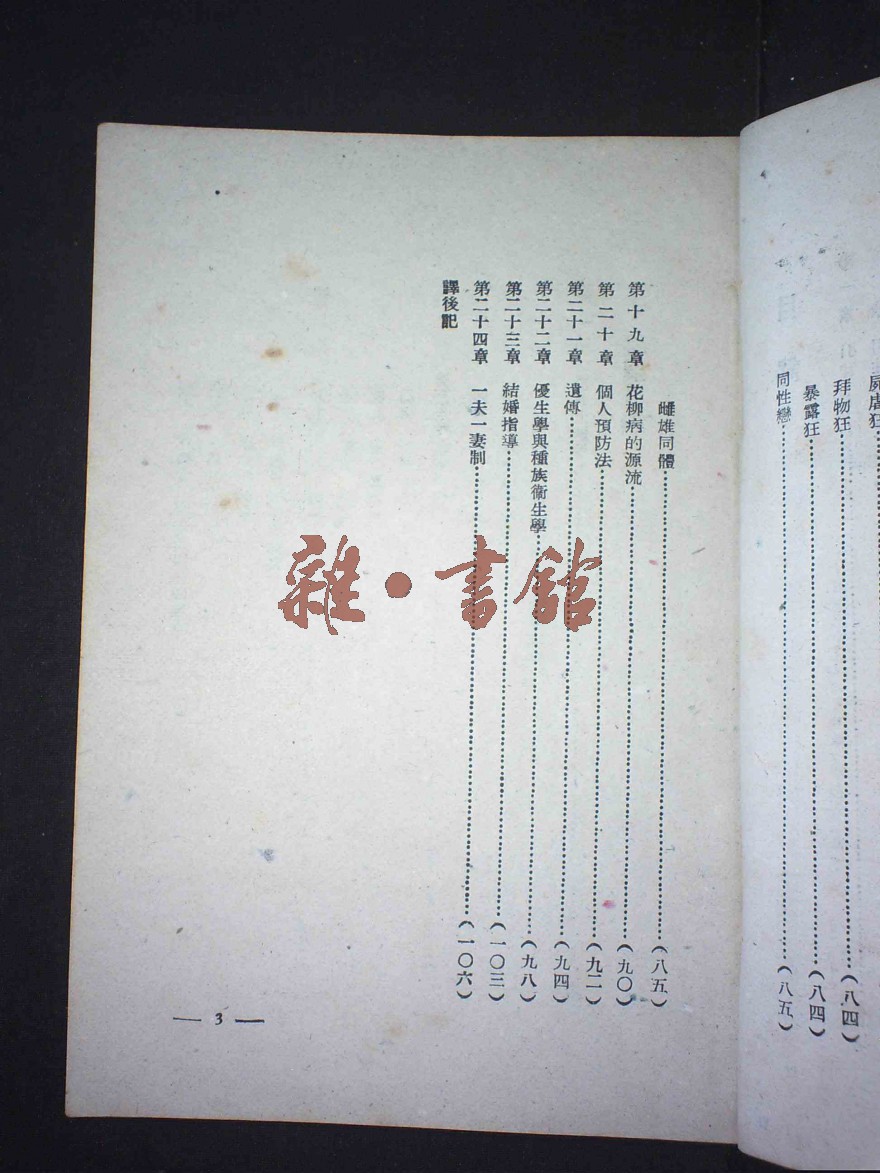 屍虐狂
拜物狂………………(八四)
暴露狂………………(八四)
同性戀………………(八五)
雌雄同體………………(八五)
第十九章 花柳病的源流………………(九〇)
第二十章 個人預防法………………(九二)
第二十一章 遺傳………………(九四)
第二十二章 優生學與種族衞生學………………(九八)
第二十三章 結婚指導………………(一〇三)
第二十四章 一夫一妻制………………(一〇六)
譯後記
— 3 —
雜·書館